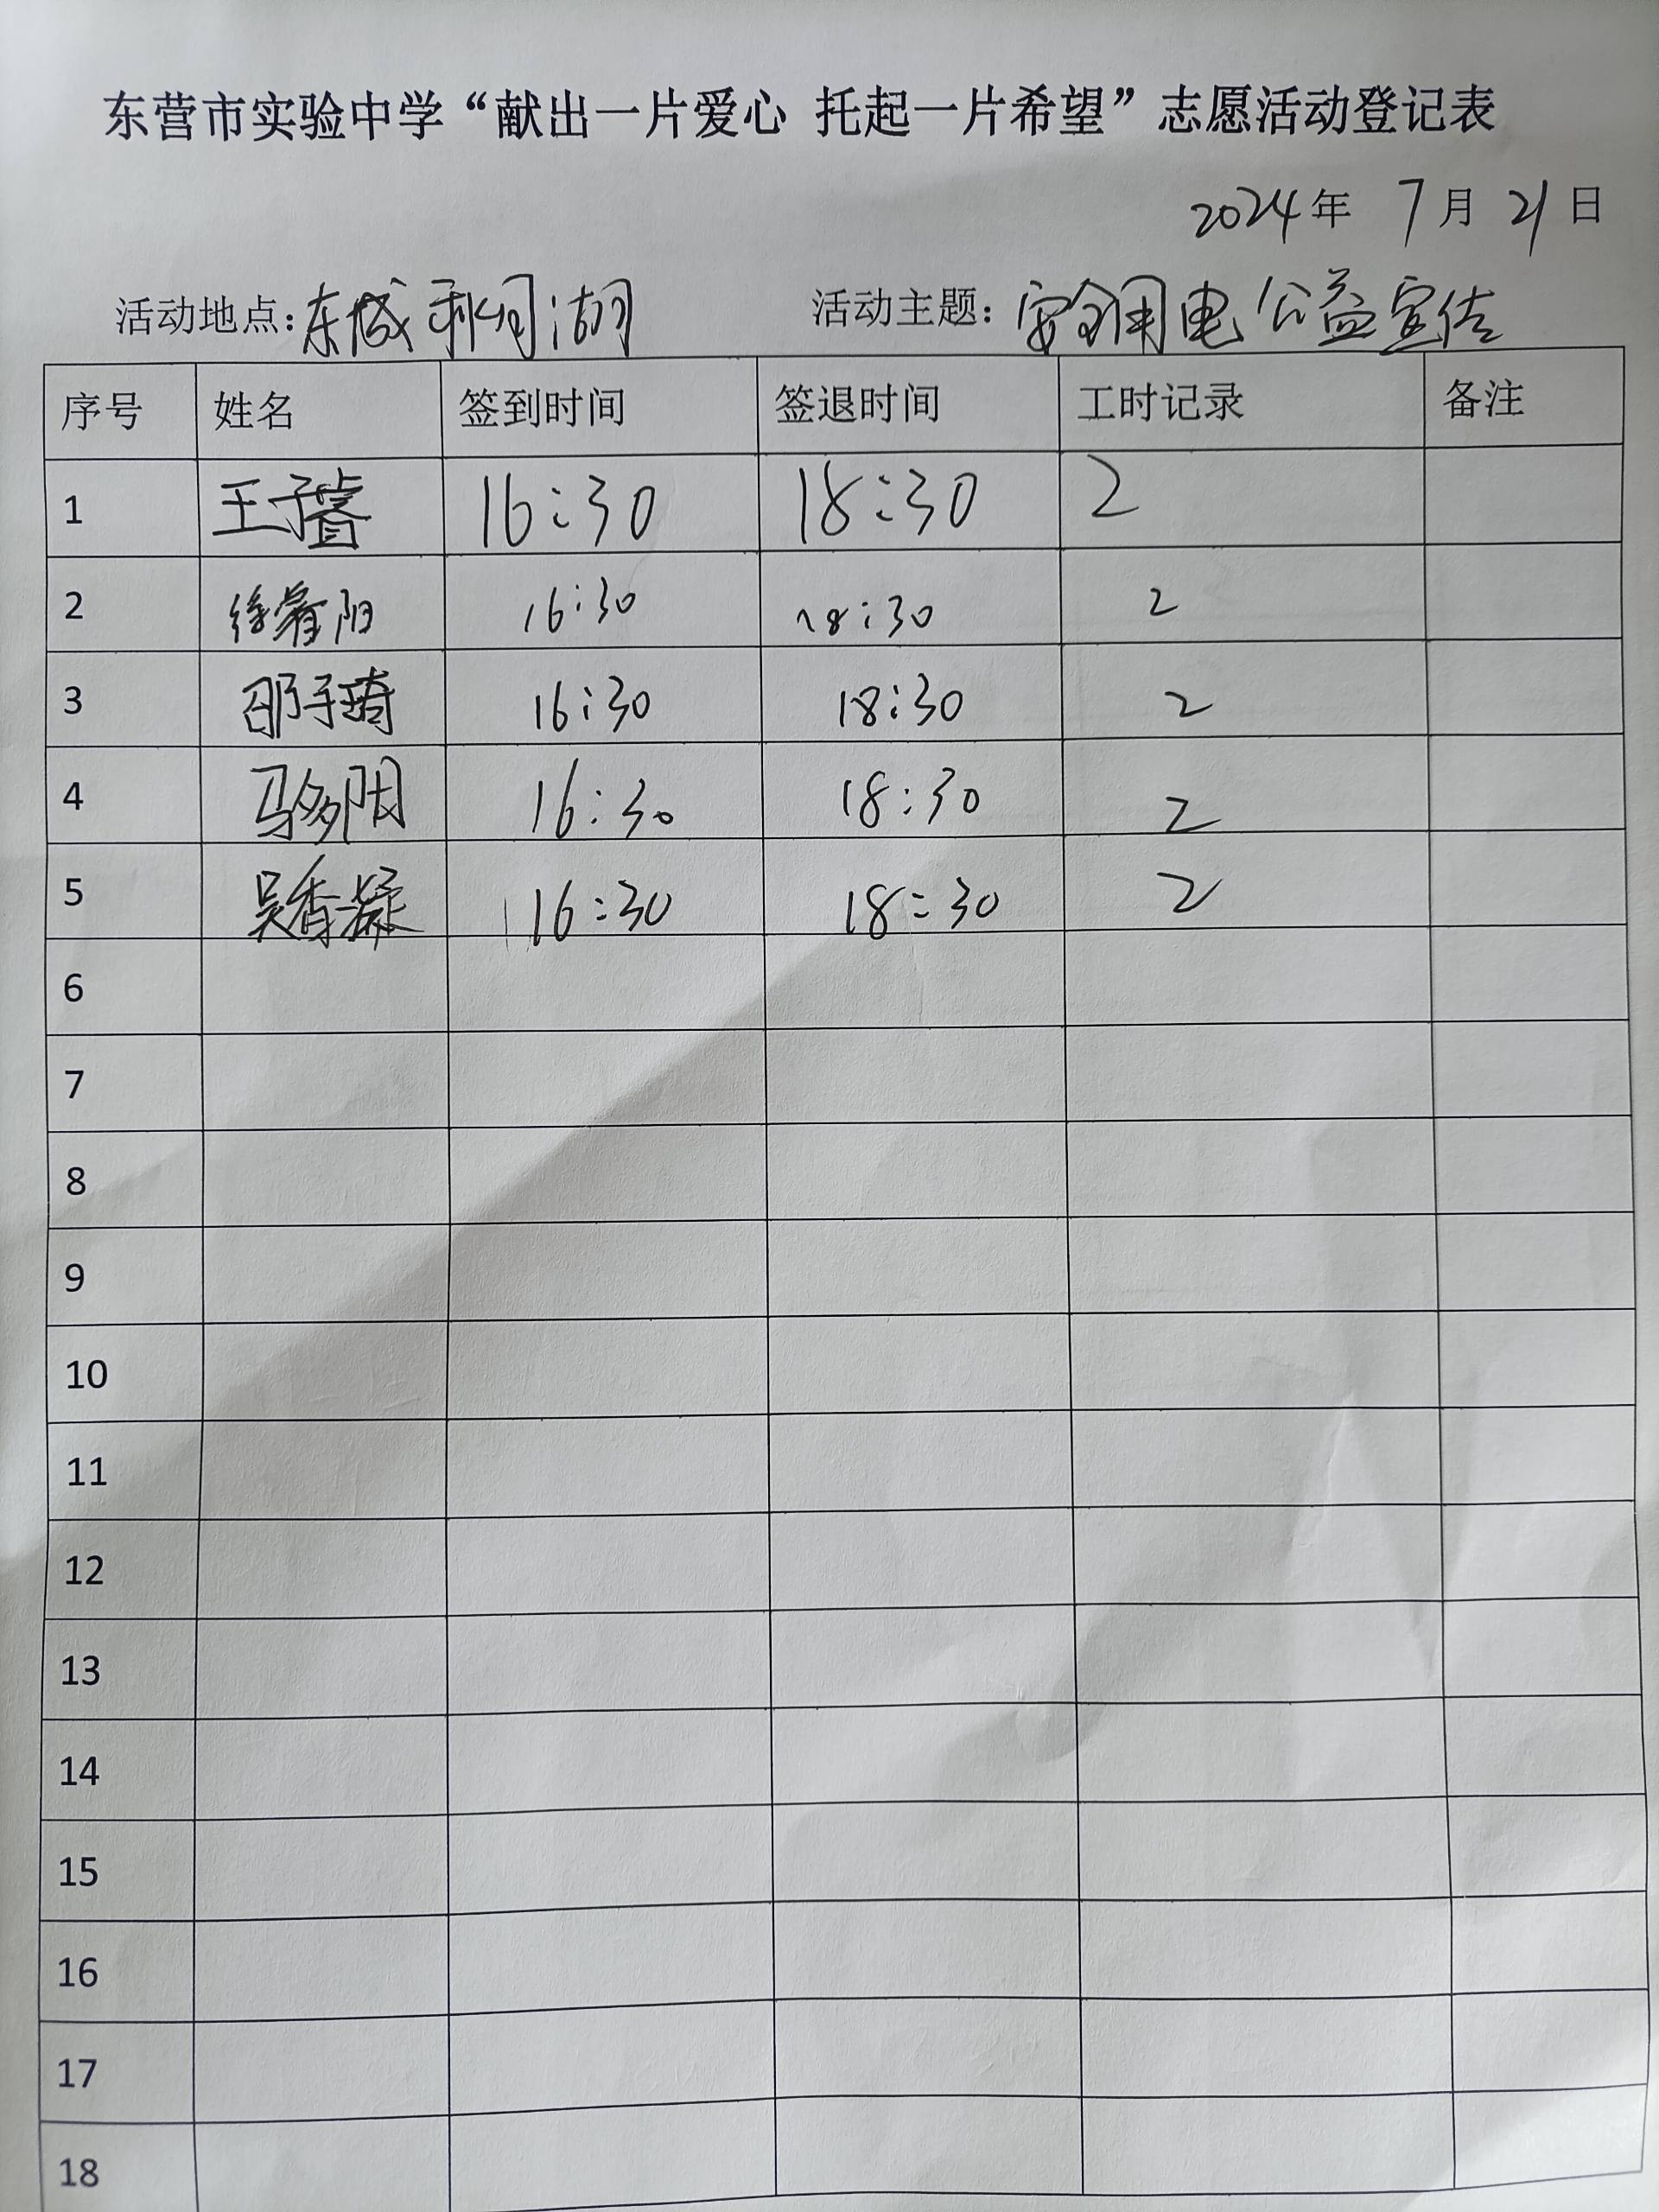 东营市实验中学“献出一片爱心 托起一片希望”志愿活动登记表
2024年 7月 21日
活动地点：东城利月湖 活动主题：安全用电公益宣传
序号 姓名 签到时间 签退时间 工时记录 备注
1 王子睿 16:30 18:30 2
2 徐睿阳 16:30 18:30 2
3 邵子琦 16:30 18:30 2
4 马多阳 16:30 18:30 2
5 吴香凝 16:30 18:30 2
6
7
8
9
10
11
12
13
14
15
16
17
18